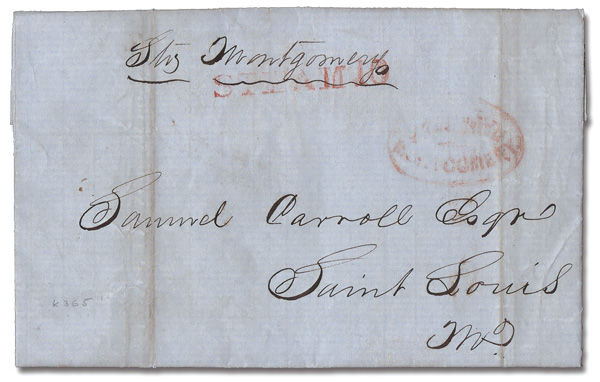 Stm Montgomery
STEAM 10
MONTGOMERY
Samuel Carroll Esqr
Saint Louis
Mo
K365